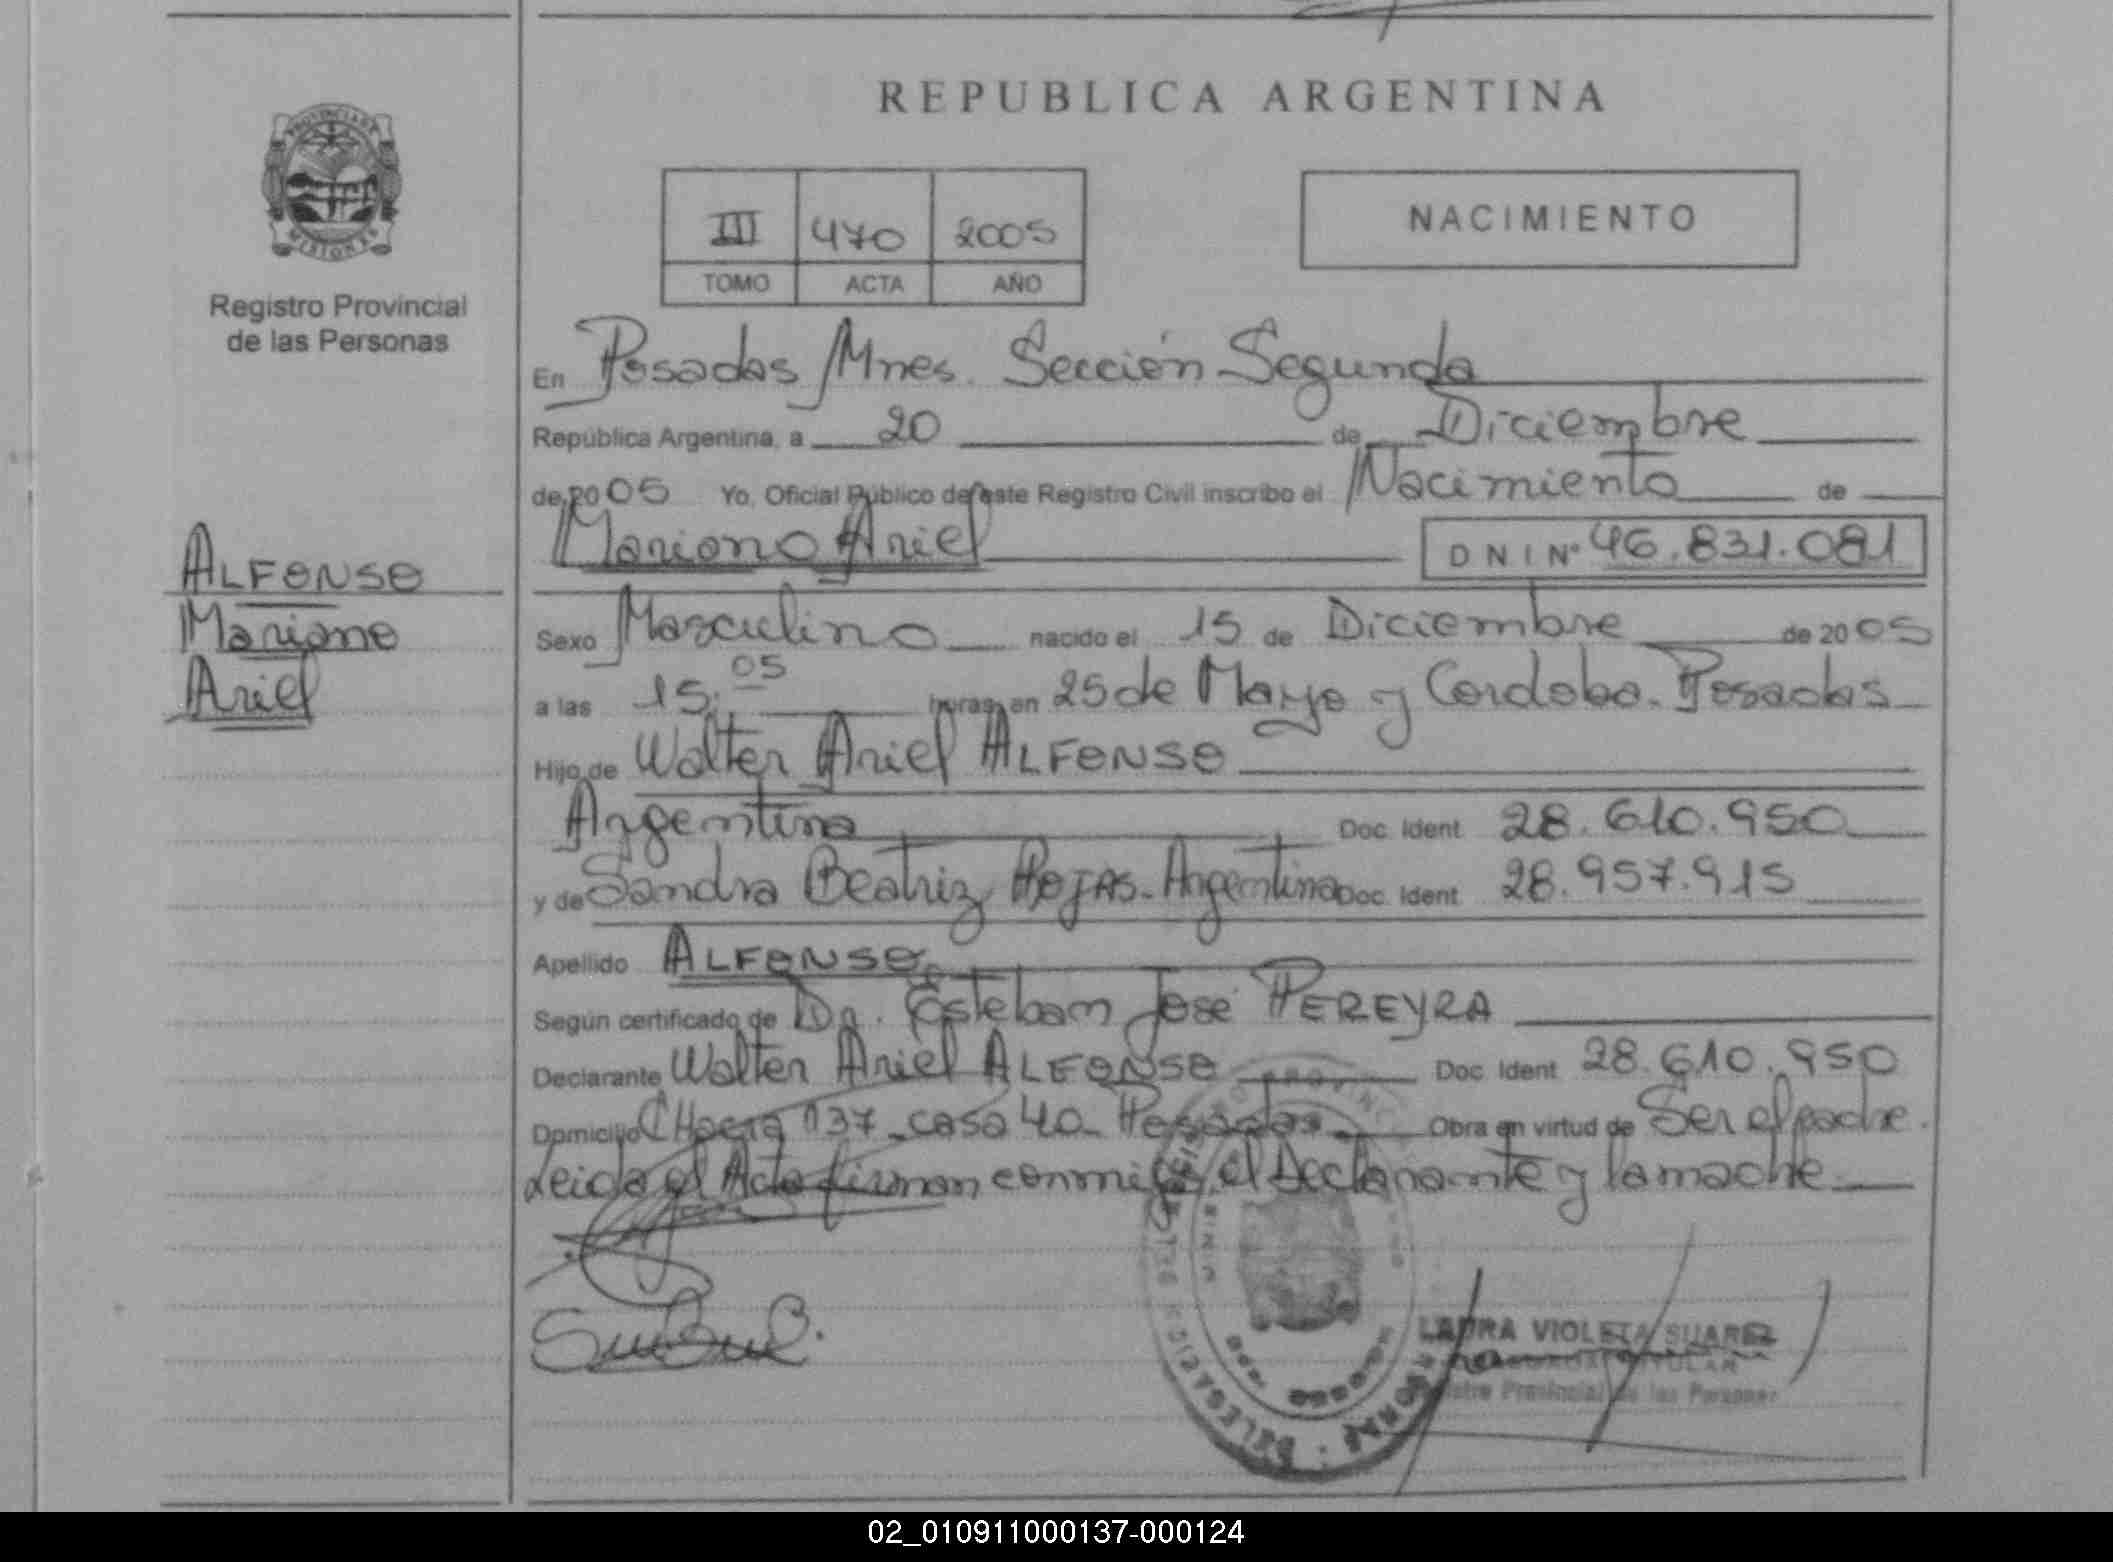 REPUBLICA ARGENTINA
PROVINCIA DE
MISIONES
Registro Provincial
de las Personas
III 470 2005
TOMO ACTA AÑO
NACIMIENTO
En Posadas Mnes. Sección Segunda
República Argentina, a 20 de Diciembre
de 2005 Yo, Oficial Público de este Registro Civil inscribo el Nacimiento de
Mariano Ariel DNI Nº 46.831.081
ALFONSO
Mariano
Ariel
Sexo Masculino nacido el 15 de Diciembre de 2005
a las 15:05 horas, en 25 de Mayo y Cordoba. Posadas
Hijo de Walter Ariel ALFONSO
Argentina Doc. Ident. 28.610.950
y de Sandra Beatriz ROJAS - Argentina Doc. Ident. 28.957.915
Apellido ALFONSO
Según certificado de Dr. Esteban José PEREYRA
Declarante Walter Ariel ALFONSO Doc. Ident. 28.610.950
Domicilio CHacra 137 - casa 40 - Posadas Obra en virtud de Ser el padre.
Leida el Acta firman conmigo el Declarante y la madre
LAURA VIOLETA SUAREZ
TITULAR
Registro Provincial de las Personas
02_010911000137-000124